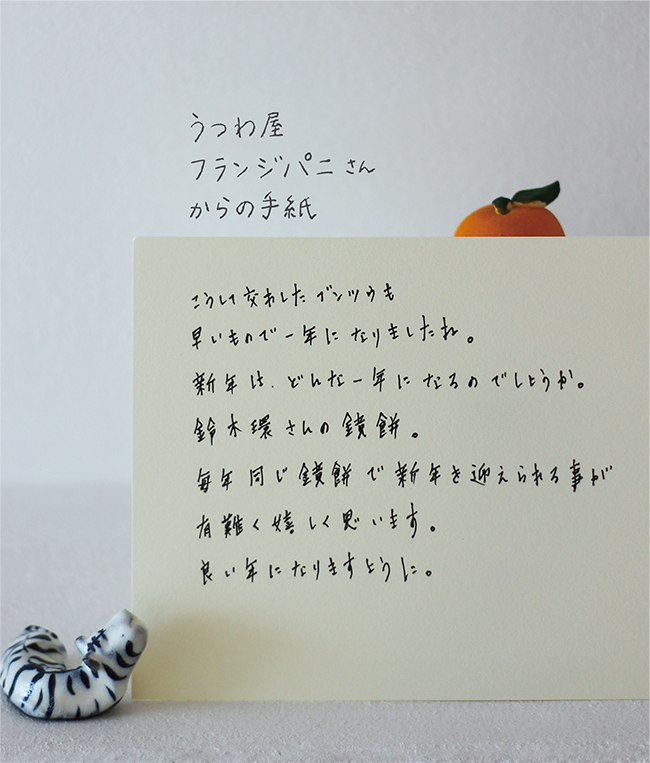 うつわ屋
フランジパニさん
からの手紙
こうして交わしたブンツウも
早いもので一年になりましたね。
新年は、どんな一年になるのでしょうか。
鈴木環さんの鏡餅。
毎年同じ鏡餅で新年を迎えられる事が
有難く嬉しく思います。
良い年になりますように。